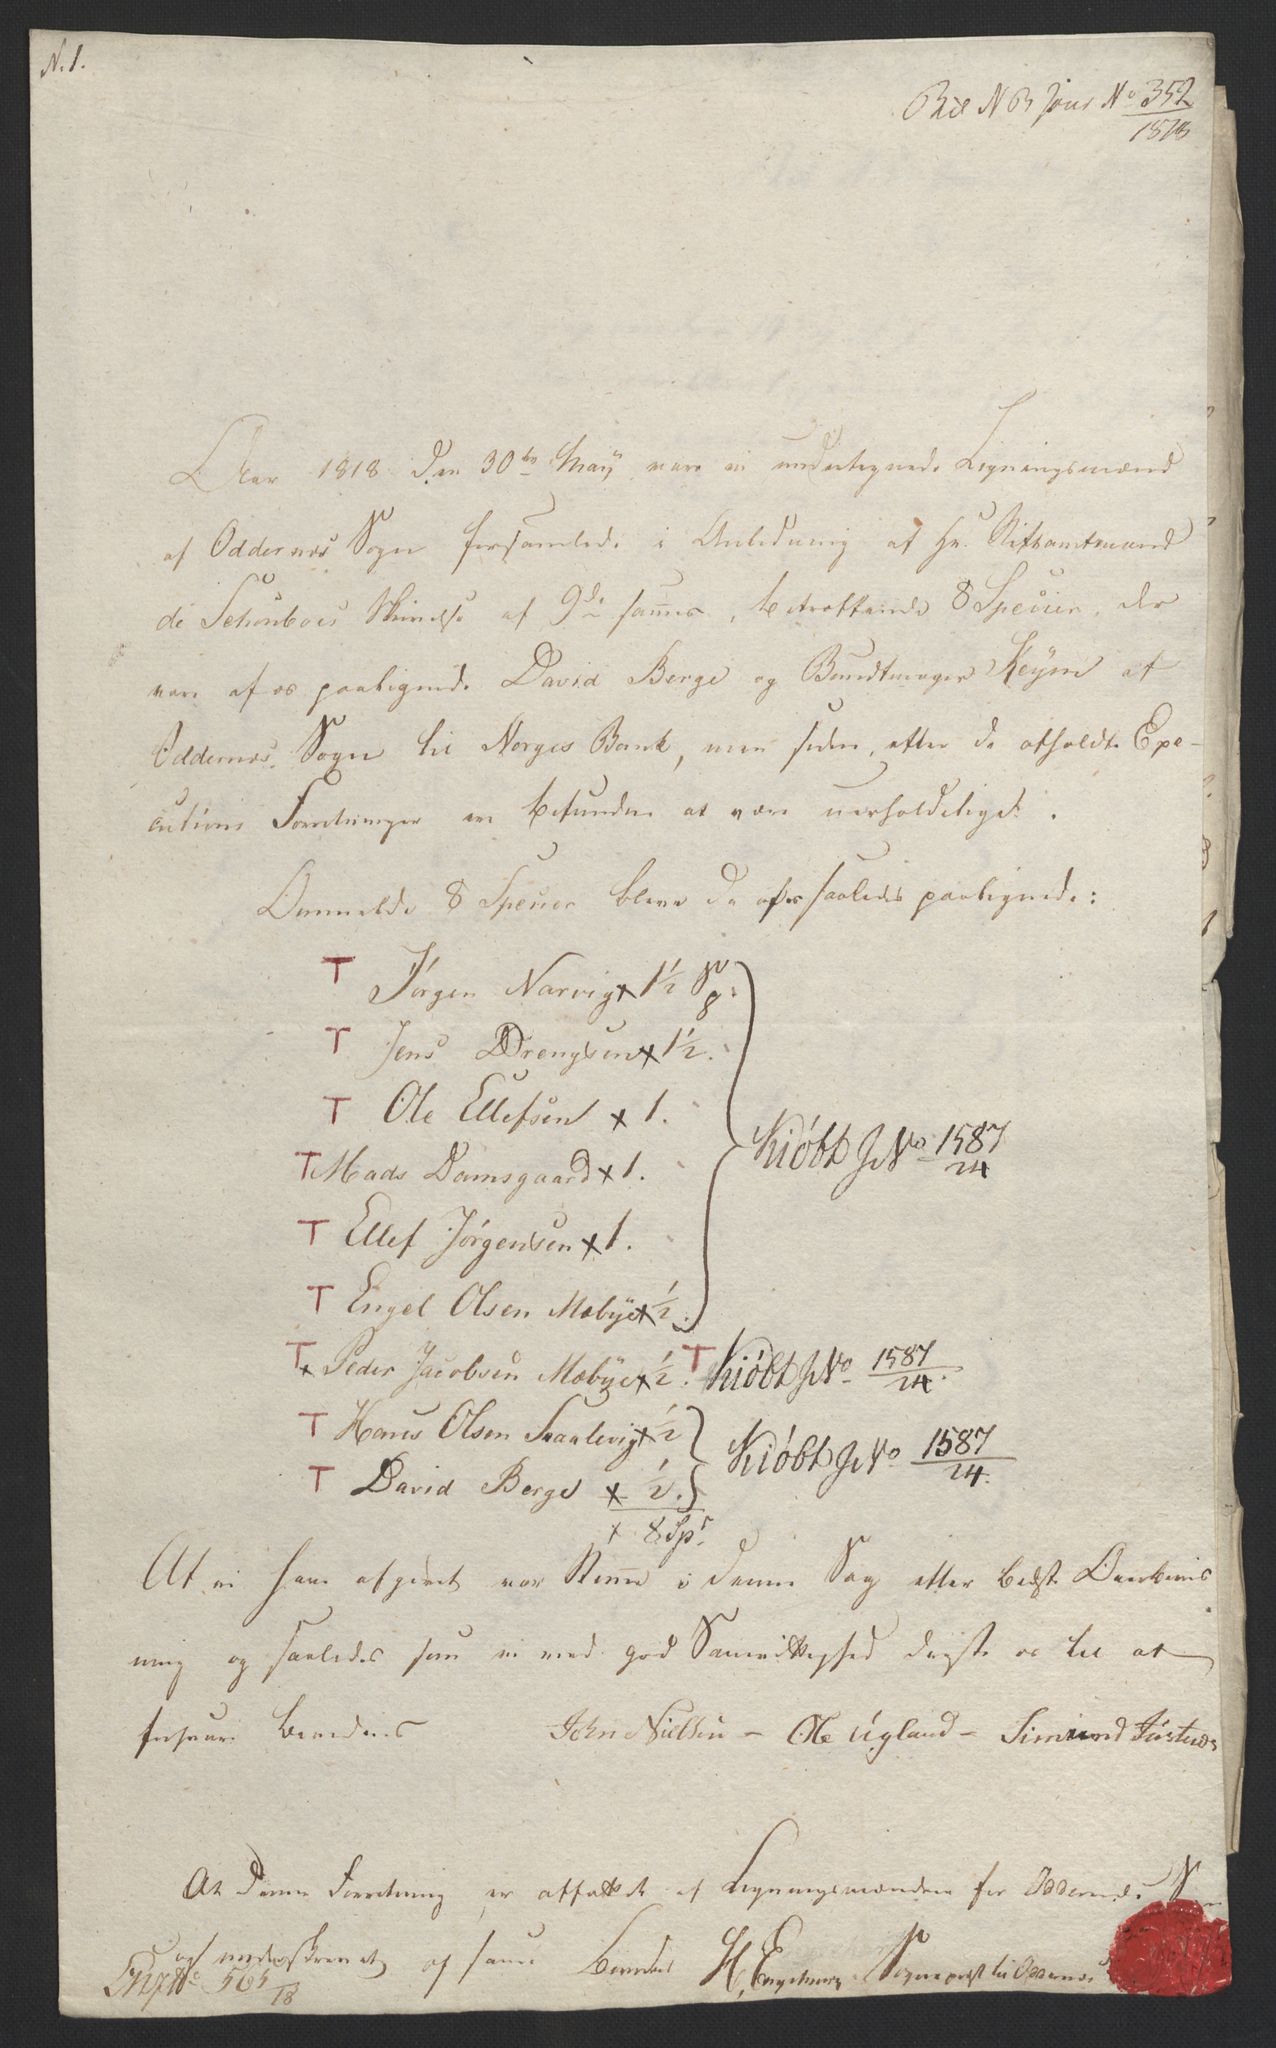 N. 1.
Bil N B Jour No 352
1818
Aar 1818 den 30te Maij vare vi undertegnede Ligningsmænd
af Oddernes Sogn forsamlede i Anledning af Hr. Stiftamtmand
de Schouboes Skrivelse af 9de sam̅es, betræffende 8 Species, der
vare af os paalignede David Berge og Bundtmager Keym af
Oddernes Sogn til Norges Bank, men siden, efter de afholdte Exe-
cutions Forretninger ere befundne at være uerholdelige.
Ommeldte 8 Species bleve da af os saaledes paalignede:
T Jørgen Narvig x 1½ Sp:
T Jens Drengsen x 1½.
T Ole Ellefsen x 1.
T Mads Damsgaard x 1.
T Ellef Jørgensen x 1.
Kiøbt J No 1587/24
T Engel Olsen Mæbye x ½.
T x Peder Jacobsen Mæbye x ½. T Kiøbt J No 1587/24.
T Hans Olsen Straalevig x ½
T David Berge x ½. Kiøbt J No 1587/24.
x 8 Spr
At vi have afgivet vor Stem̅e i denne Sag efter bedste Overbeviis
ning og saaledes som vi med god Samvittighed driste os til at
forsvare bevidnes John Nielsen - Ole Ugland - Simund
At denne Forretning er affattet af Ligningsmændene for Oddernes S
og underskrevet af sam̅e bevidner H. Sognepræst til Oddernes
No 565/18